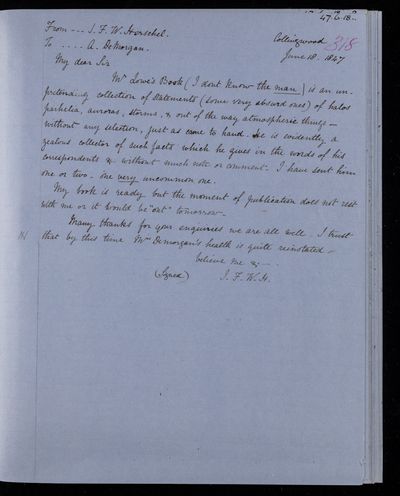 47.6.18
From --- J. F. W. Herschel.
To .... A. DeMorgan.
Collingwood 318
June 18. 1847
My dear Sir
Mr Lowe's Book (I dont know the man) is an un-
pretending collection of statements (some very absurd ones) of halos
parhelia, auroras, storms, & out of the way atmospheric things -
without any selection, just as came to hand. He is evidently a
zealous collector of such facts which he gives in the words of his
correspondents & without much note or comment. I have sent him
one or two - one very uncommon one.
My book is ready but the moment of publication does not rest
with me or it would be "out" tomorrow -
Many thanks for your enquiries we are all well. I trust
that by this time Mrs Demorgan's health is quite reinstated -
believe me &c -
(Signed) J. F. W. H.